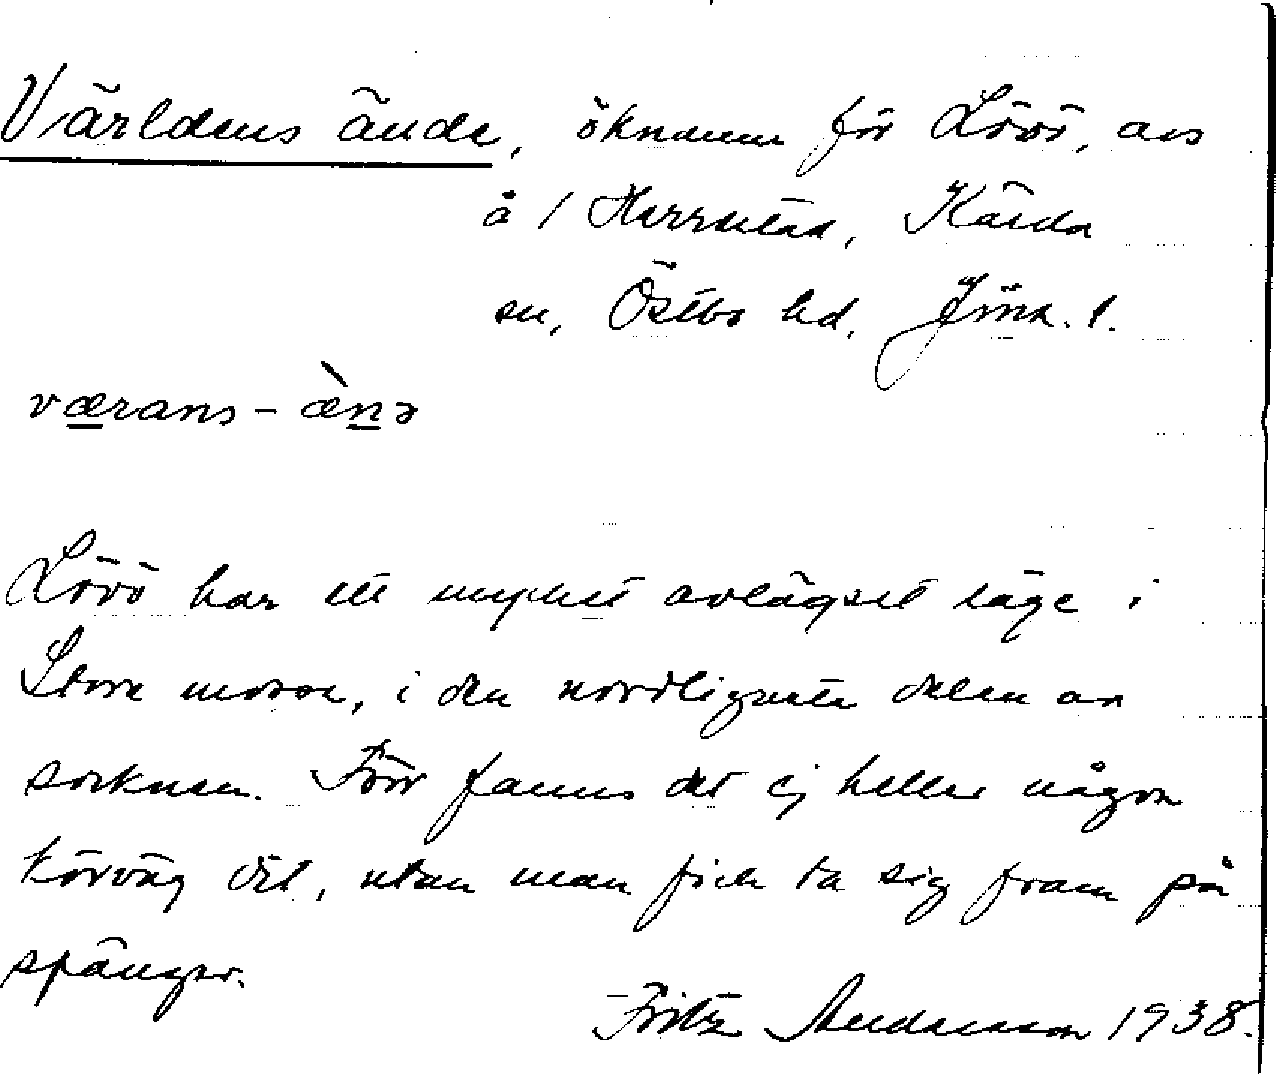 Världens ände, öknamn för Lövö, avs
å 1 Herrestad, Kärda
sn, Östbo hd, Jönk. l.
værans - æ̀nə
Lövö har ett mycket avlägset läge i
Stora mosse, i den nordligaste delen av
socknen. Förr fanns det ej heller någon
körväg dit, utan man fick ta sig fram på
spänger.
Fritz Andersson 1938.